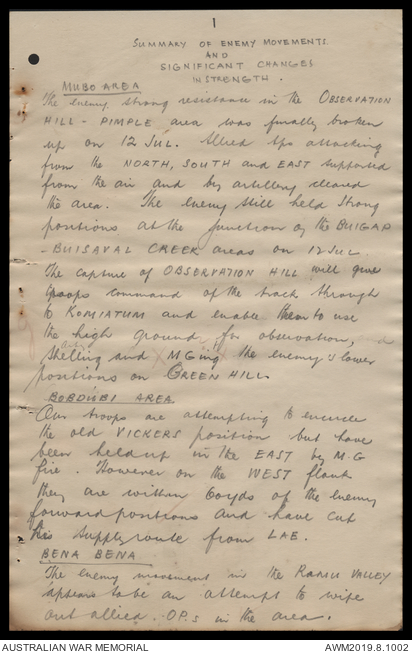 1
SUMMARY OF ENEMY MOVEMENTS
AND
SIGNIFICANT CHANGES
IN STRENGTH.
MUBO AREA
The enemy strong resistance in the OBSERVATION
HILL - PIMPLE area was finally broken
up on 12 JUL. Allied tps attacking
from the NORTH, SOUTH and EAST supported
from the air and by artillery cleared
the area. The enemy still held strong
positions at the junction of the BUIGAP
- BUISAVAL CREEK areas on 12 JUL.
The capture of OBSERVATION HILL will give
troops command of the track through
to KOMIATUM and enable them to use
the high ground for observation,
shelling and MGing the enemy's lower
positions on GREEN HILL.
BOBDUBI AREA
Our troops are attempting to encircle
the old VICKERS position but have
been held up in the EAST by M.G
fire. However on the WEST flank
they are within 60yds of the enemy
forward positions and have cut
his supply route from LAE.
BENA BENA
The enemy movement in the RAMU VALLEY
appears to be an attempt to wipe
out allied OP.s in the area.
AUSTRALIAN WAR MEMORIAL
AWM2019.8.1002